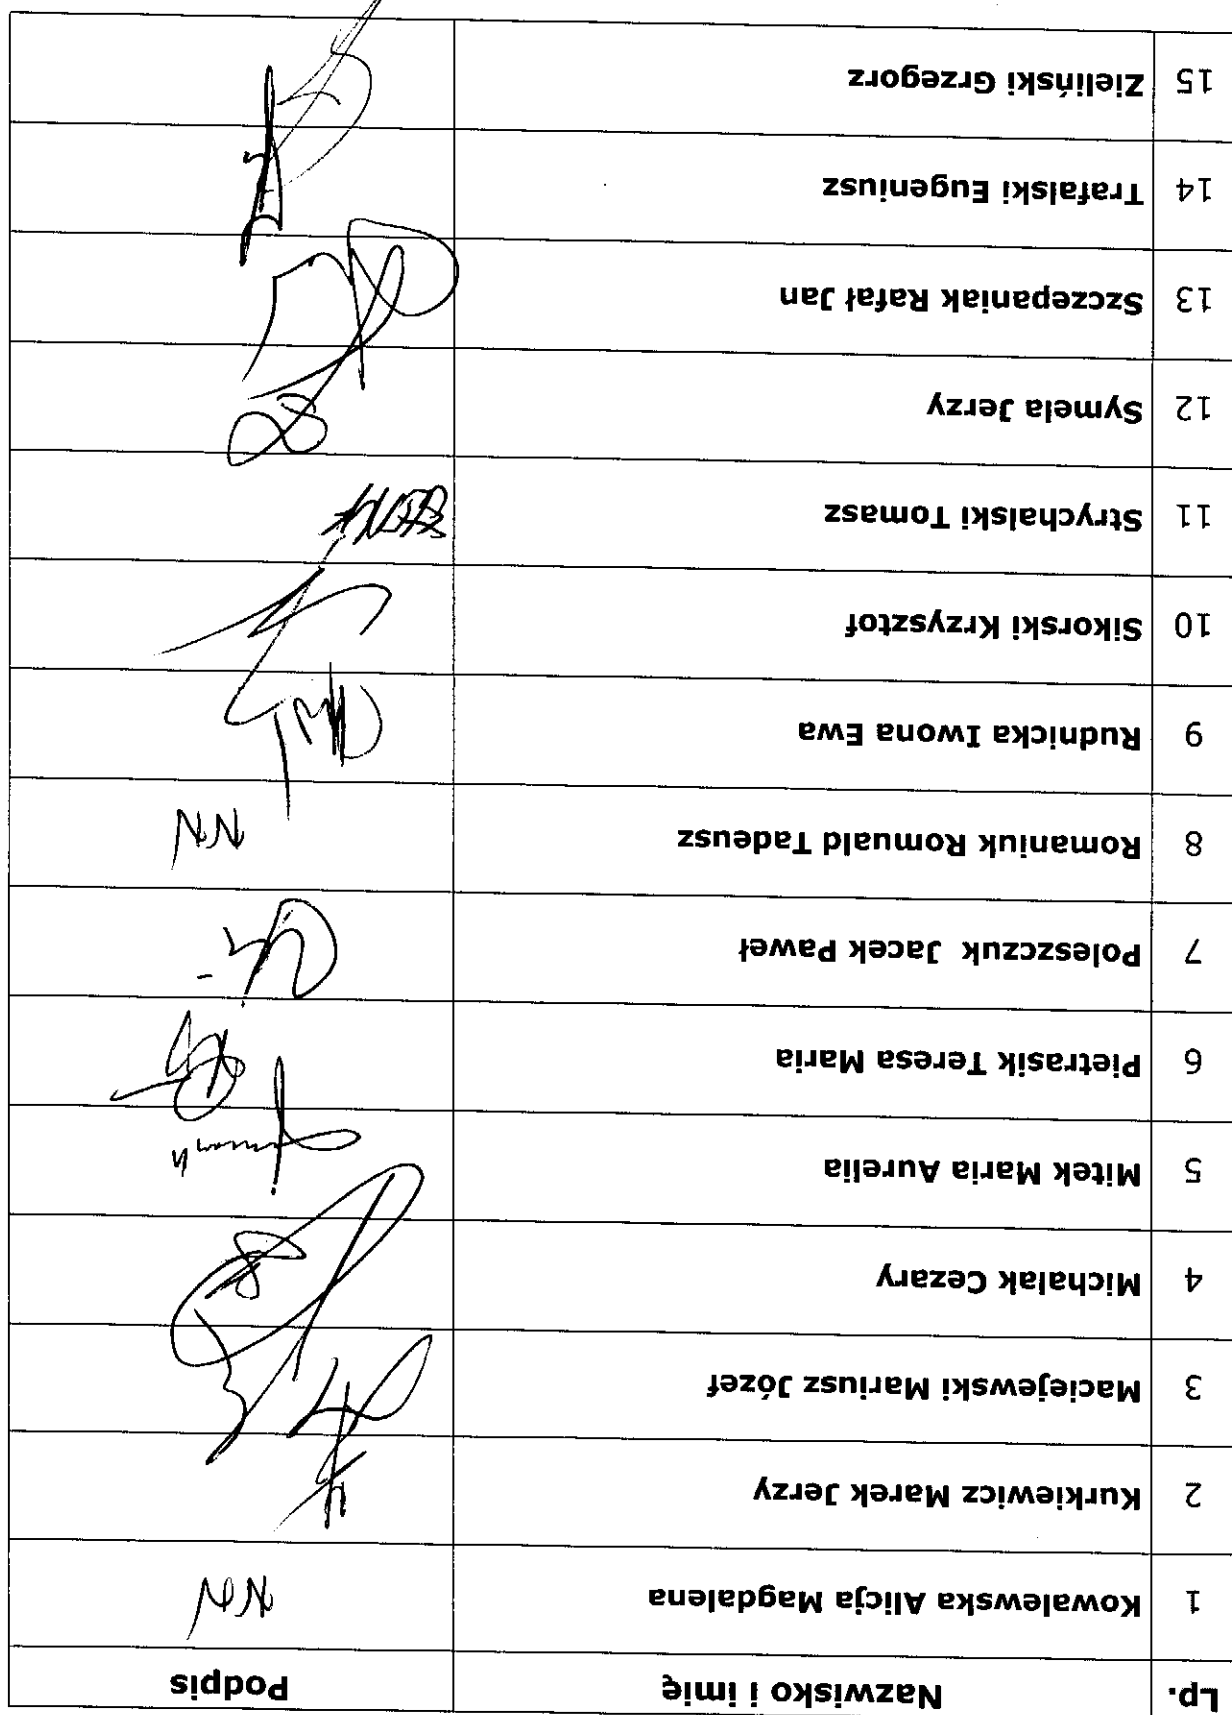 Lp. Nazwisko i imię Podpis
1 Kowalewska Alicja Magdalena NN
2 Kurkiewicz Marek Jerzy
3 Maciejewski Mariusz Józef
4 Michalak Cezary
5 Mitek Maria Aurelia
6 Pietrasik Teresa Maria
7 Poleszczuk Jacek Paweł
8 Romaniuk Romuald Tadeusz NN
9 Rudnicka Iwona Ewa
10 Sikorski Krzysztof
11 Strychalski Tomasz
12 Symela Jerzy
13 Szczepaniak Rafał Jan
14 Trafalski Eugeniusz
15 Zieliński Grzegorz